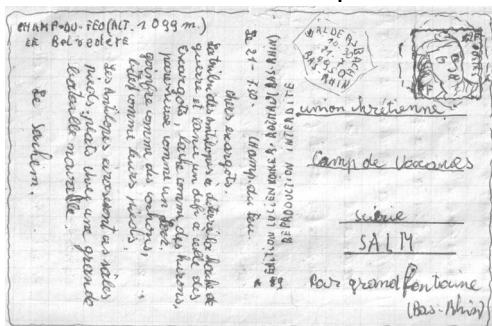 CHAMP-DU-FEO (ALT. 1099 m.)
LE Belvédère
Le 21-7.50. Champ du feu.
chers escargots.
La tribu des Antilopes a déterré la hache de
guerre et lance un défi à celle des
Escargots, lache comme des hurons,
paresseuse comme un
gonflée comme des cochons,
laids comme leurs nids.
Les Antilopes écraseront ces sâles
nids-plats chez une grande
bataille navale.
Le Sachem.
EDITION LUCIEN KOHLER. ROTHAU (BAS-RHIN)
REPRODUCTION INTERDITE
BAS-RHIN
union chrétienne.
Camp de Vacances
scierie
SALM
Par grand fontaine
(Bas-Rhin)